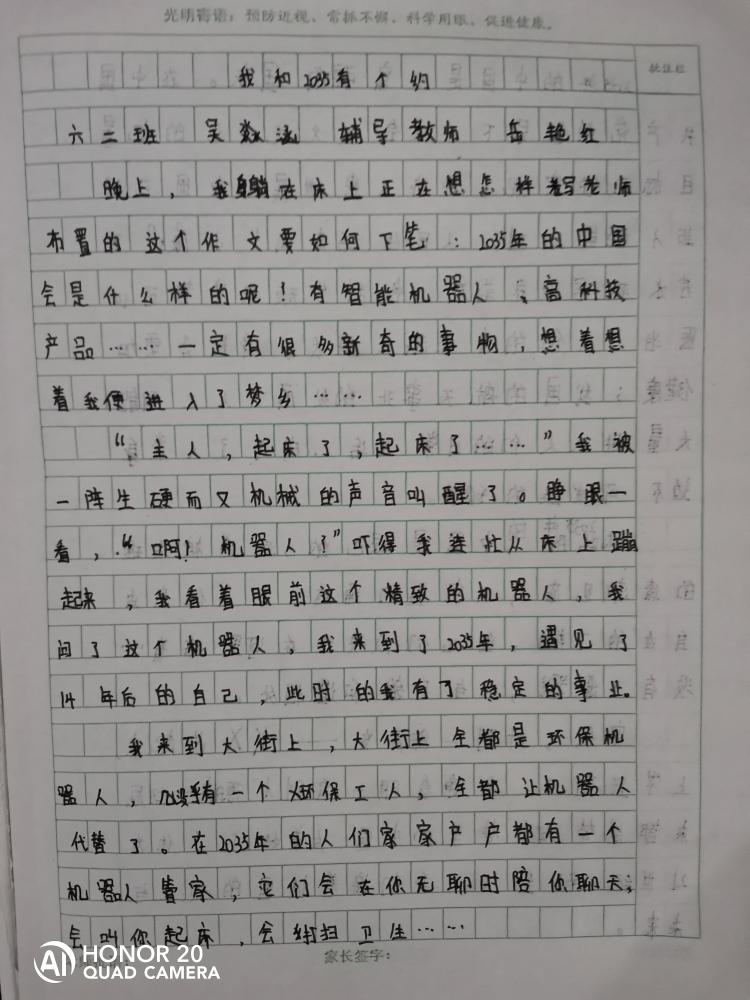 光明寄语：预防近视、常抓不懈、科学用眼、促进健康。
批注栏
我和2035有个约
六二班 吴涵 辅导教师 岳艳红
晚上，我躺在床上正在想怎样写老师
布置的这个作文要如何下笔：2035年的中国
会是什么样的呢！有智能机器人、高科技
产品……一定有很多新奇的事物，想着想
着我便进入了梦乡……
“主人，起床了，起床了……”我被
一阵生硬而又机械的声音叫醒了。睁眼一
看，“啊！机器人？”吓得我连忙从床上蹦
起来，我看着眼前这个精致的机器人，我
问了这个机器人，我来到了2035年，遇见了
14年后的自己，此时的我有了稳定的事业。
我来到大街上，大街上全都是环保机
器人，几乎没有一个环保工人，全都让机器人
代替了。在2035年的人们家家户户都有一个
机器人管家，它们会在你无聊时陪你聊天；
会叫你起床，会打扫卫生……
家长签字：
AI HONOR 20
QUAD CAMERA